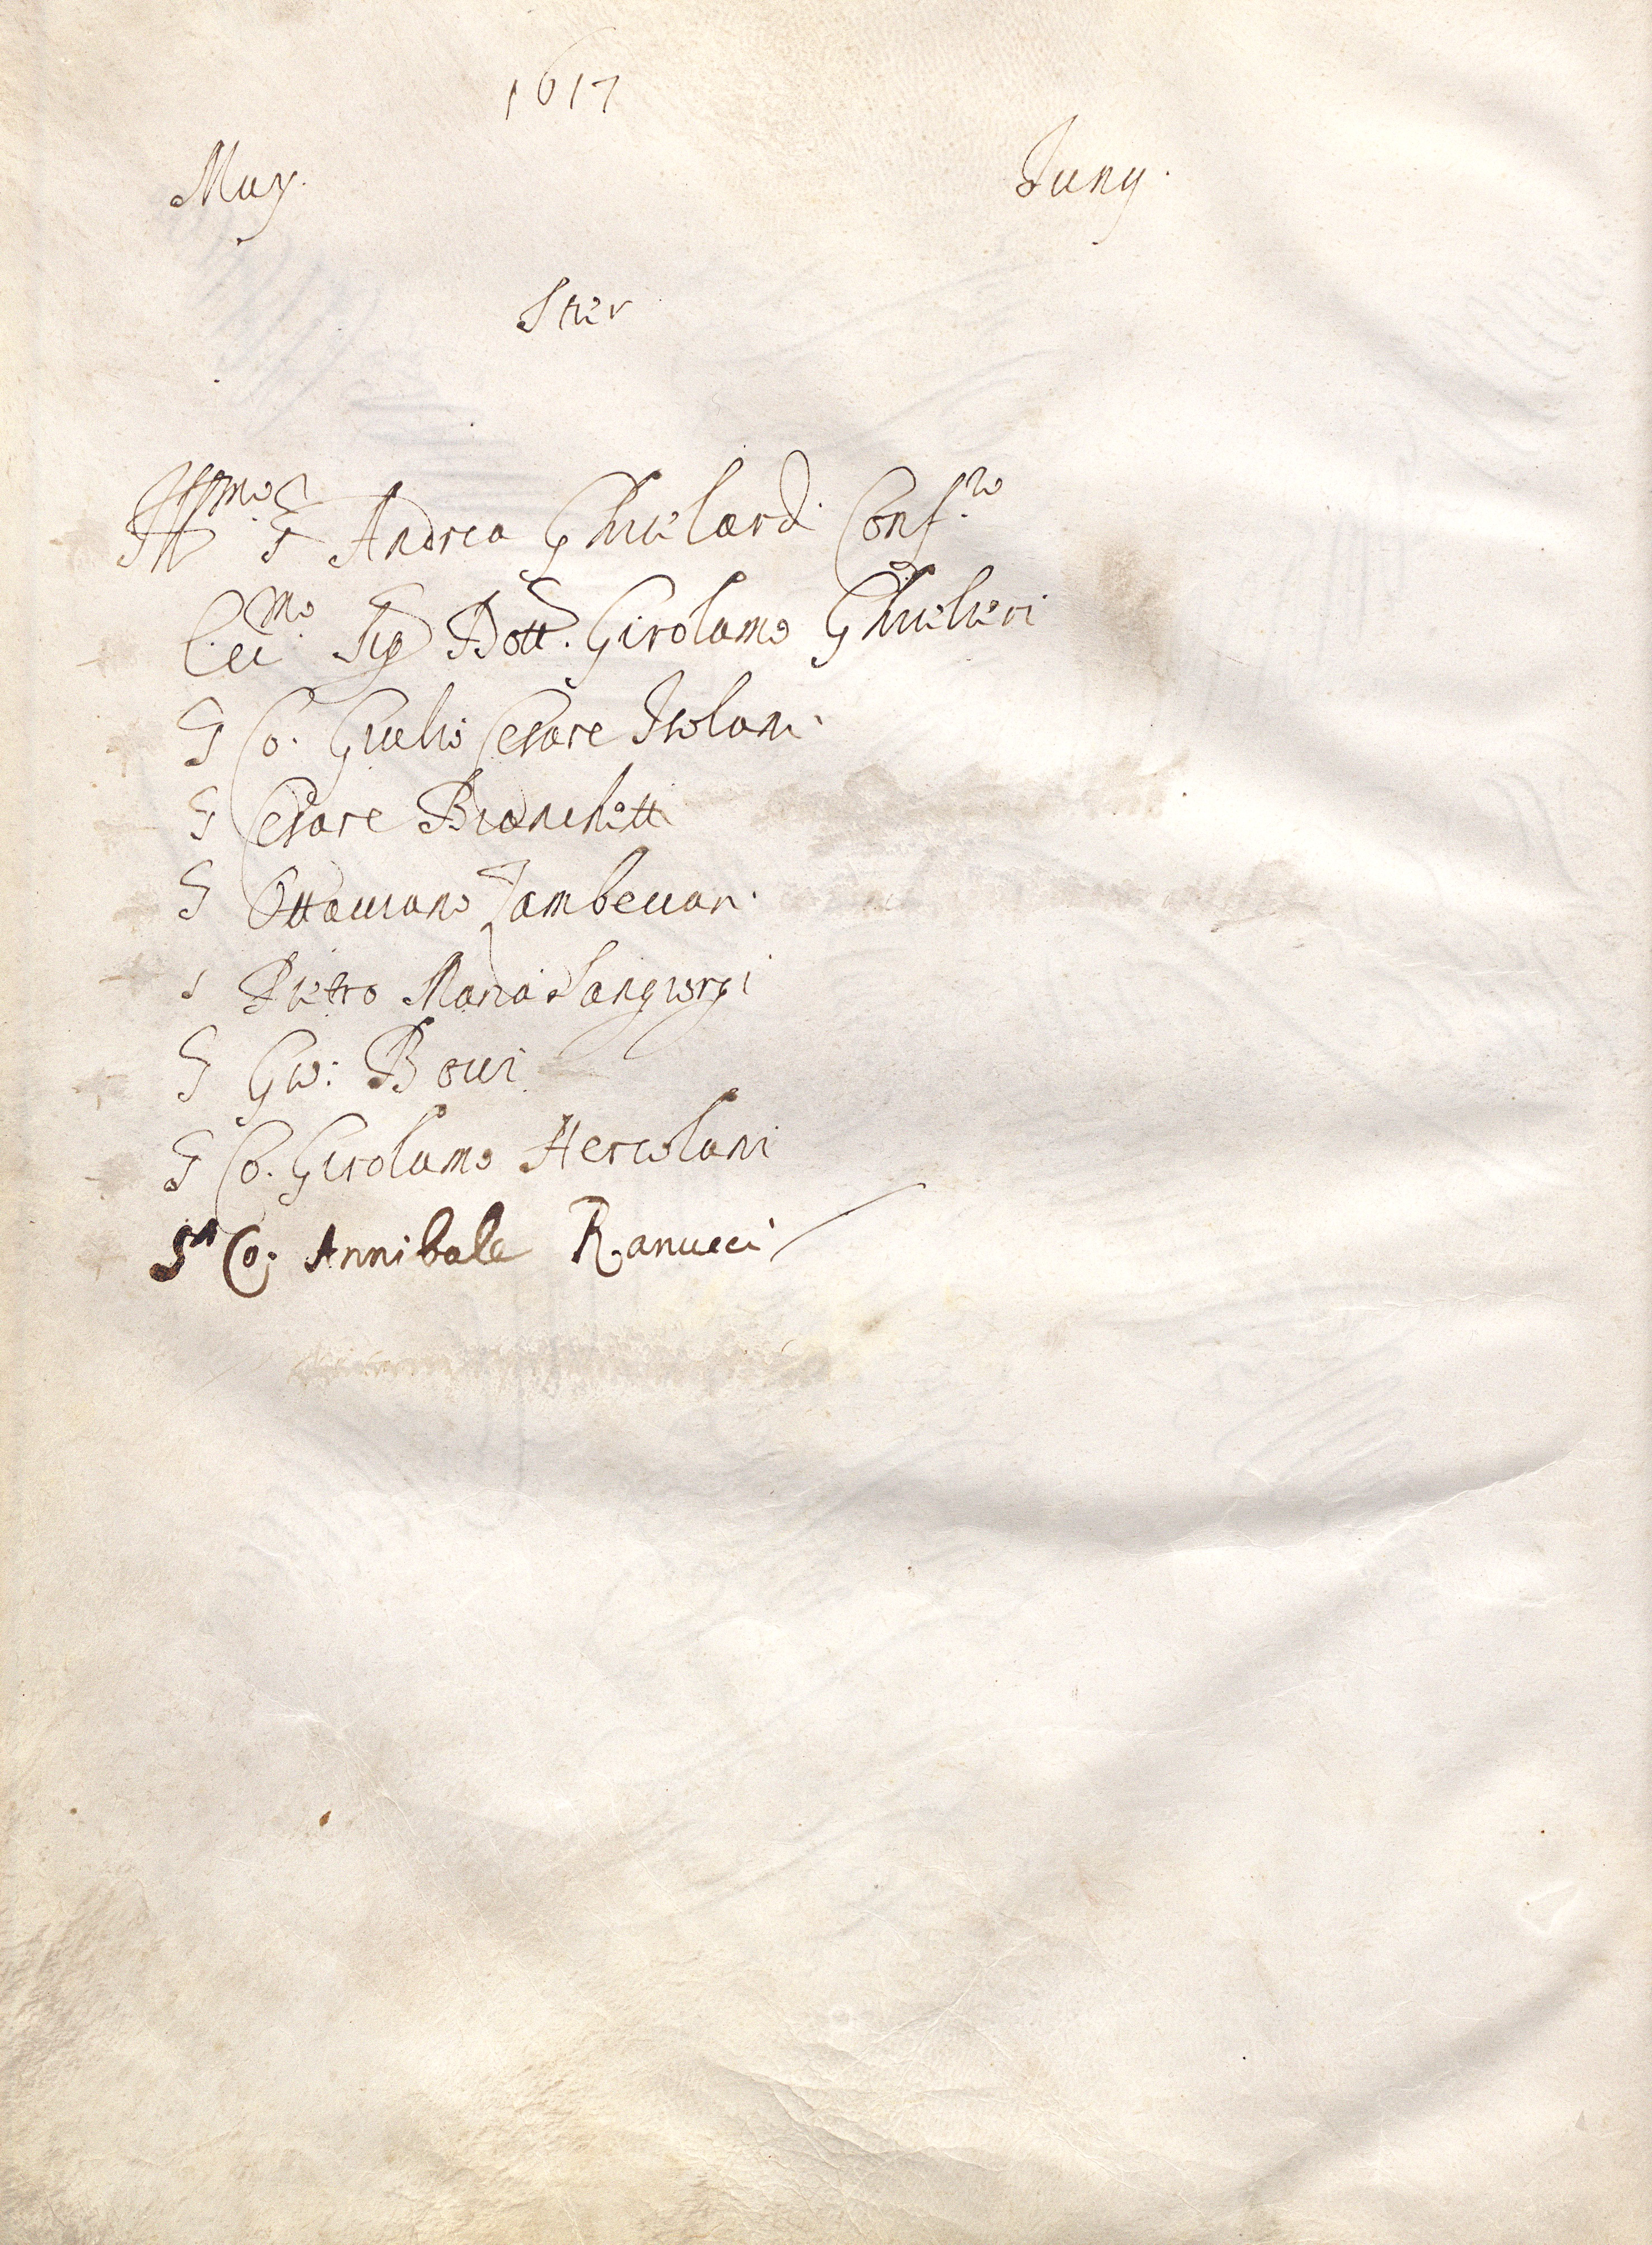 1617
May. Juny.
Ster
Ill.mo S. Andrea Ghisilardi Conf.re
Ecc.mo Sig Dott. Girolamo Ghisilieri
S Co. Giulio Cesare Isolani
S Cesare Bianchetti
S Ottaviano Zambeccari
S Pietro Maria Sangiorgi
S Gio: Bovi
S Co. Girolamo Hercolani
Sr Co: Annibale Ranucci